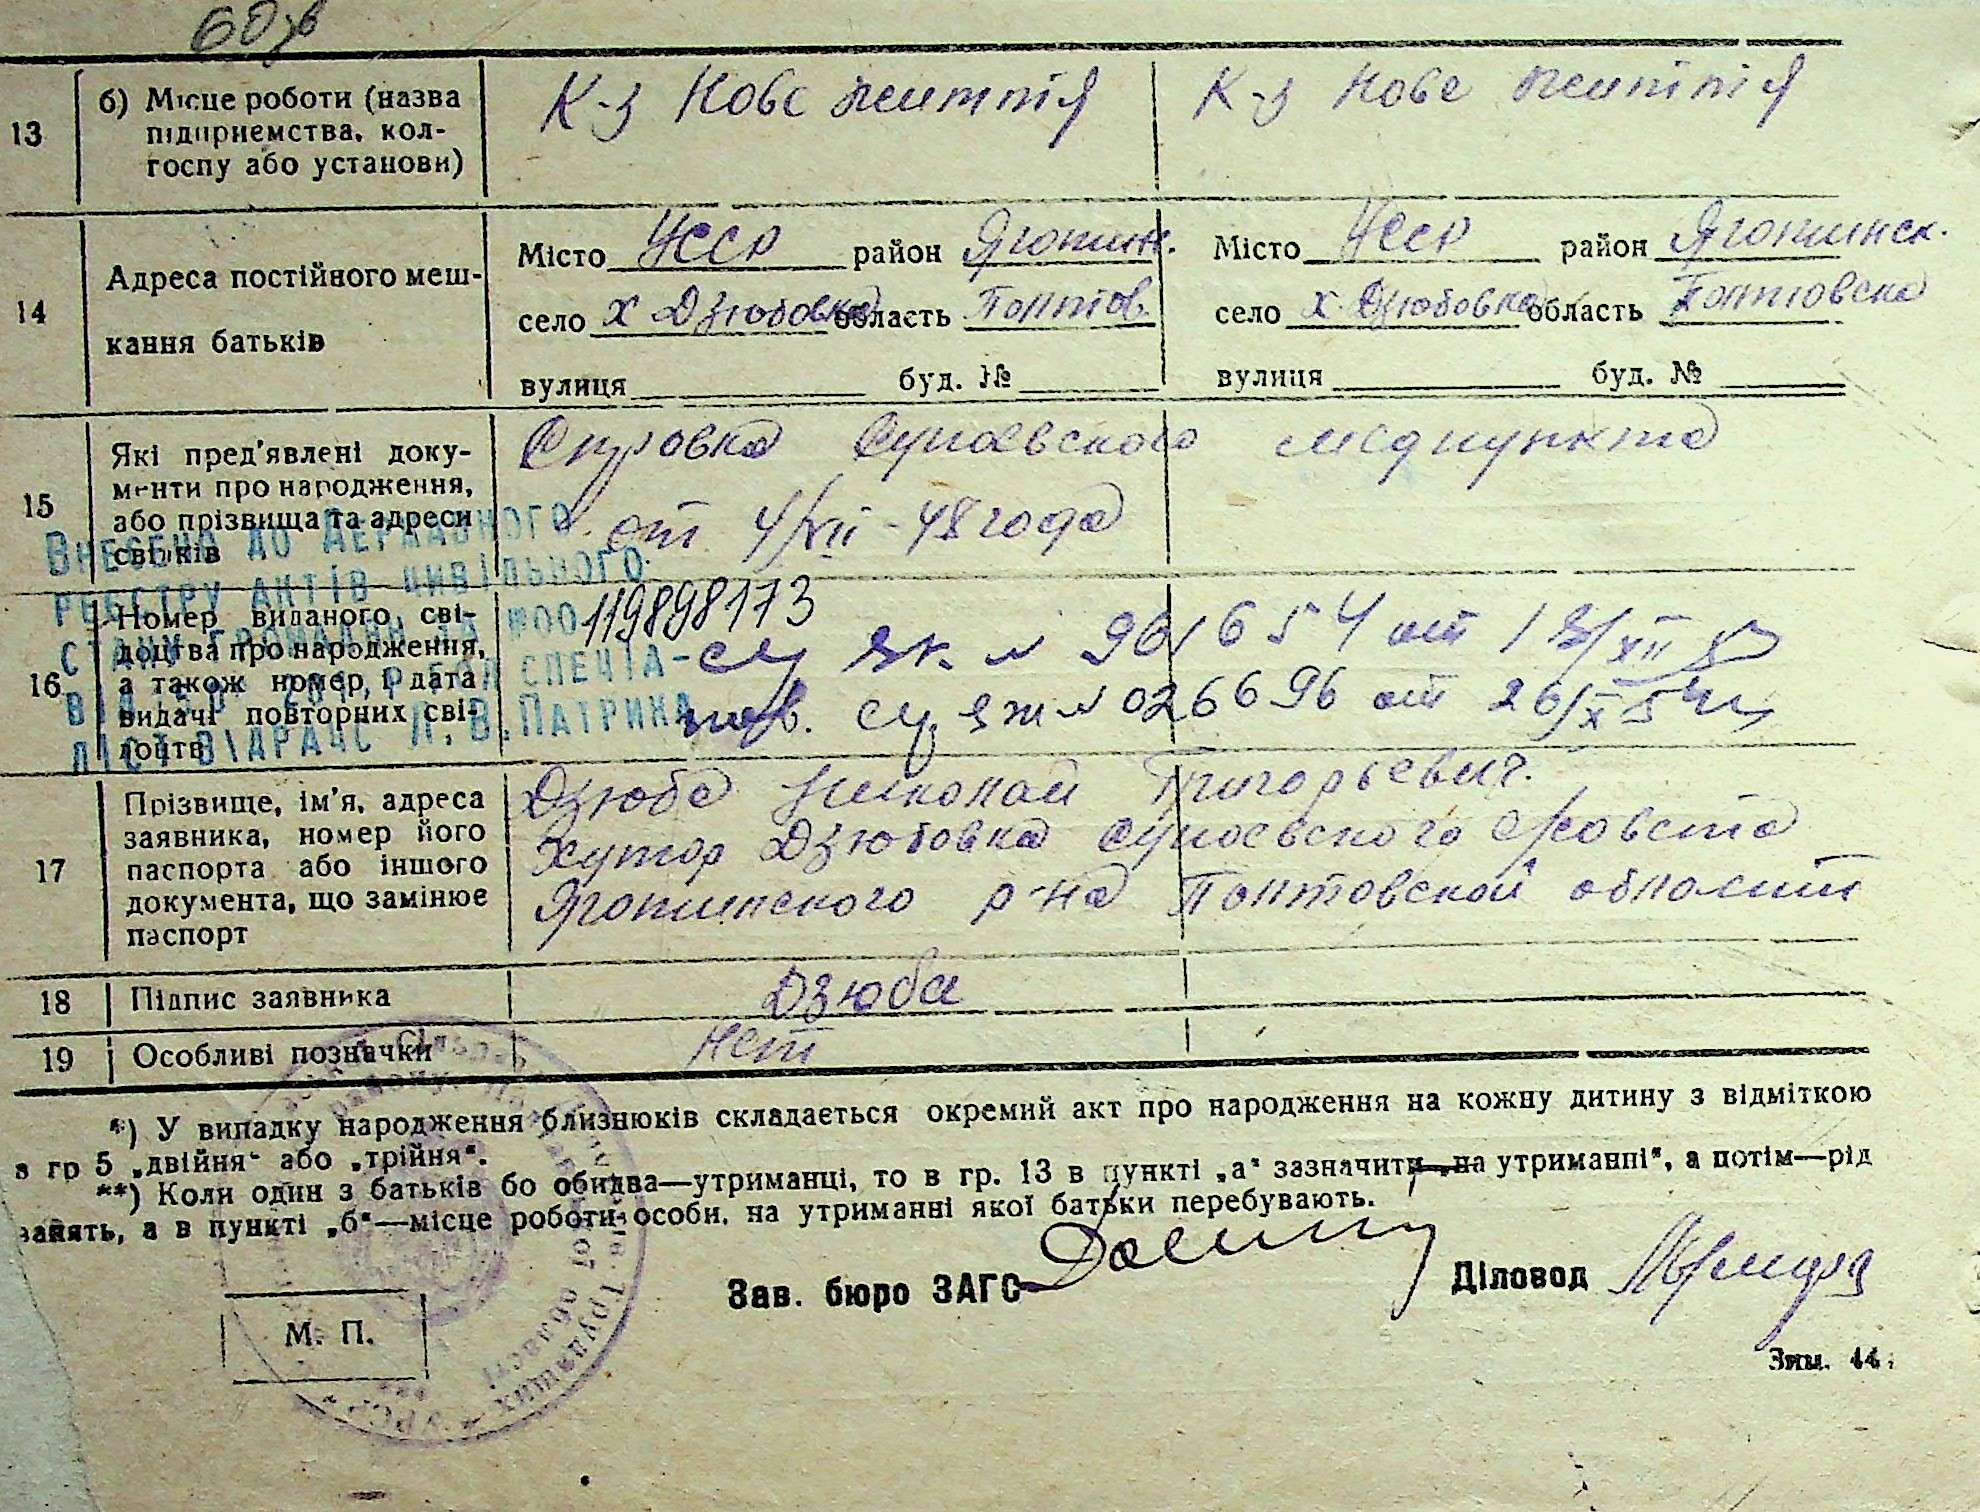 60 зв
13 б) Місце роботи (назва підприємства, колгоспу або установи)
К-з Нове життя К-з Нове життя
14 Адреса постійного мешкання батьків
Місто УССР район Яготинск. Місто УССР район Яготинск.
село х Дзюбовка область Полтов. село х Дзюбовка область Полтовска
вулиця буд. № вулиця буд. №
15 Які пред'явлені документи про народження, або прізвища та адреси свідків
Справка Супоевского медпункта
от 4/XII-48 года
Внесено до Державного
реєстру актів цивільного
стану громадян за №00119898173
спеціа-
ліст відрацс Л. В. Патрика
16 Номер виданого свідоцтва про народження, а також номер і дата видачі повторних свідоцтв
№ 961654 от
пов. № 026696 от 26/X 54
17 Прізвище, ім'я, адреса заявника, номер його паспорта або іншого документа, що замінює паспорт
Дзюба Николай Григорьевич.
Хутор Дзюбовка Супоевского с/совета
Яготинского р-на Полтовской области
18 Підпис заявника Дзюба
19 Особливі позначки нет
*) У випадку народження близнюків складається окремий акт про народження на кожну дитину з відміткою
в гр 5 „двійня“ або „трійня“.
**) Коли один з батьків бо обидва—утриманці, то в гр. 13 в пункті „а“ зазначити „на утриманні“, а потім—рід
занять, а в пункті „б“—місце роботи особи, на утриманні якої батьки перебувають.
Зав. бюро ЗАГС Діловод
М. П.